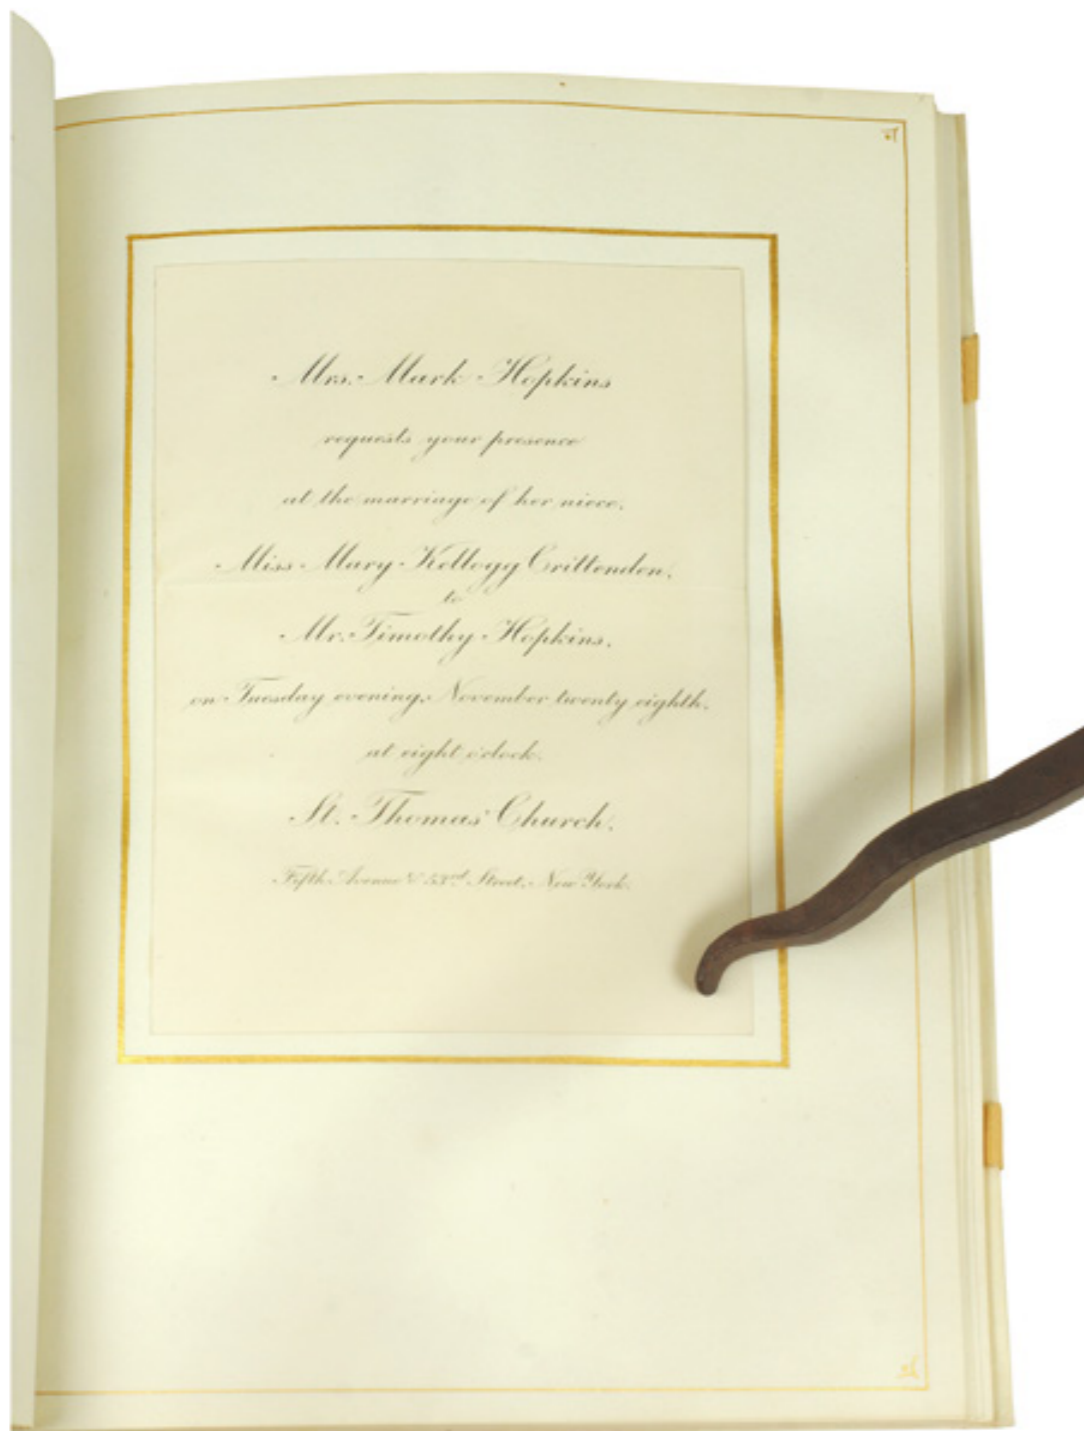 Mrs. Mark Hopkins
requests your presence
at the marriage of her niece,
Miss Mary Kellogg Crittenden,
to
Mr. Timothy Hopkins,
on Tuesday evening, November twenty eighth,
at eight o'clock,
St. Thomas' Church,
Fifth Avenue & 53rd Street, New York.